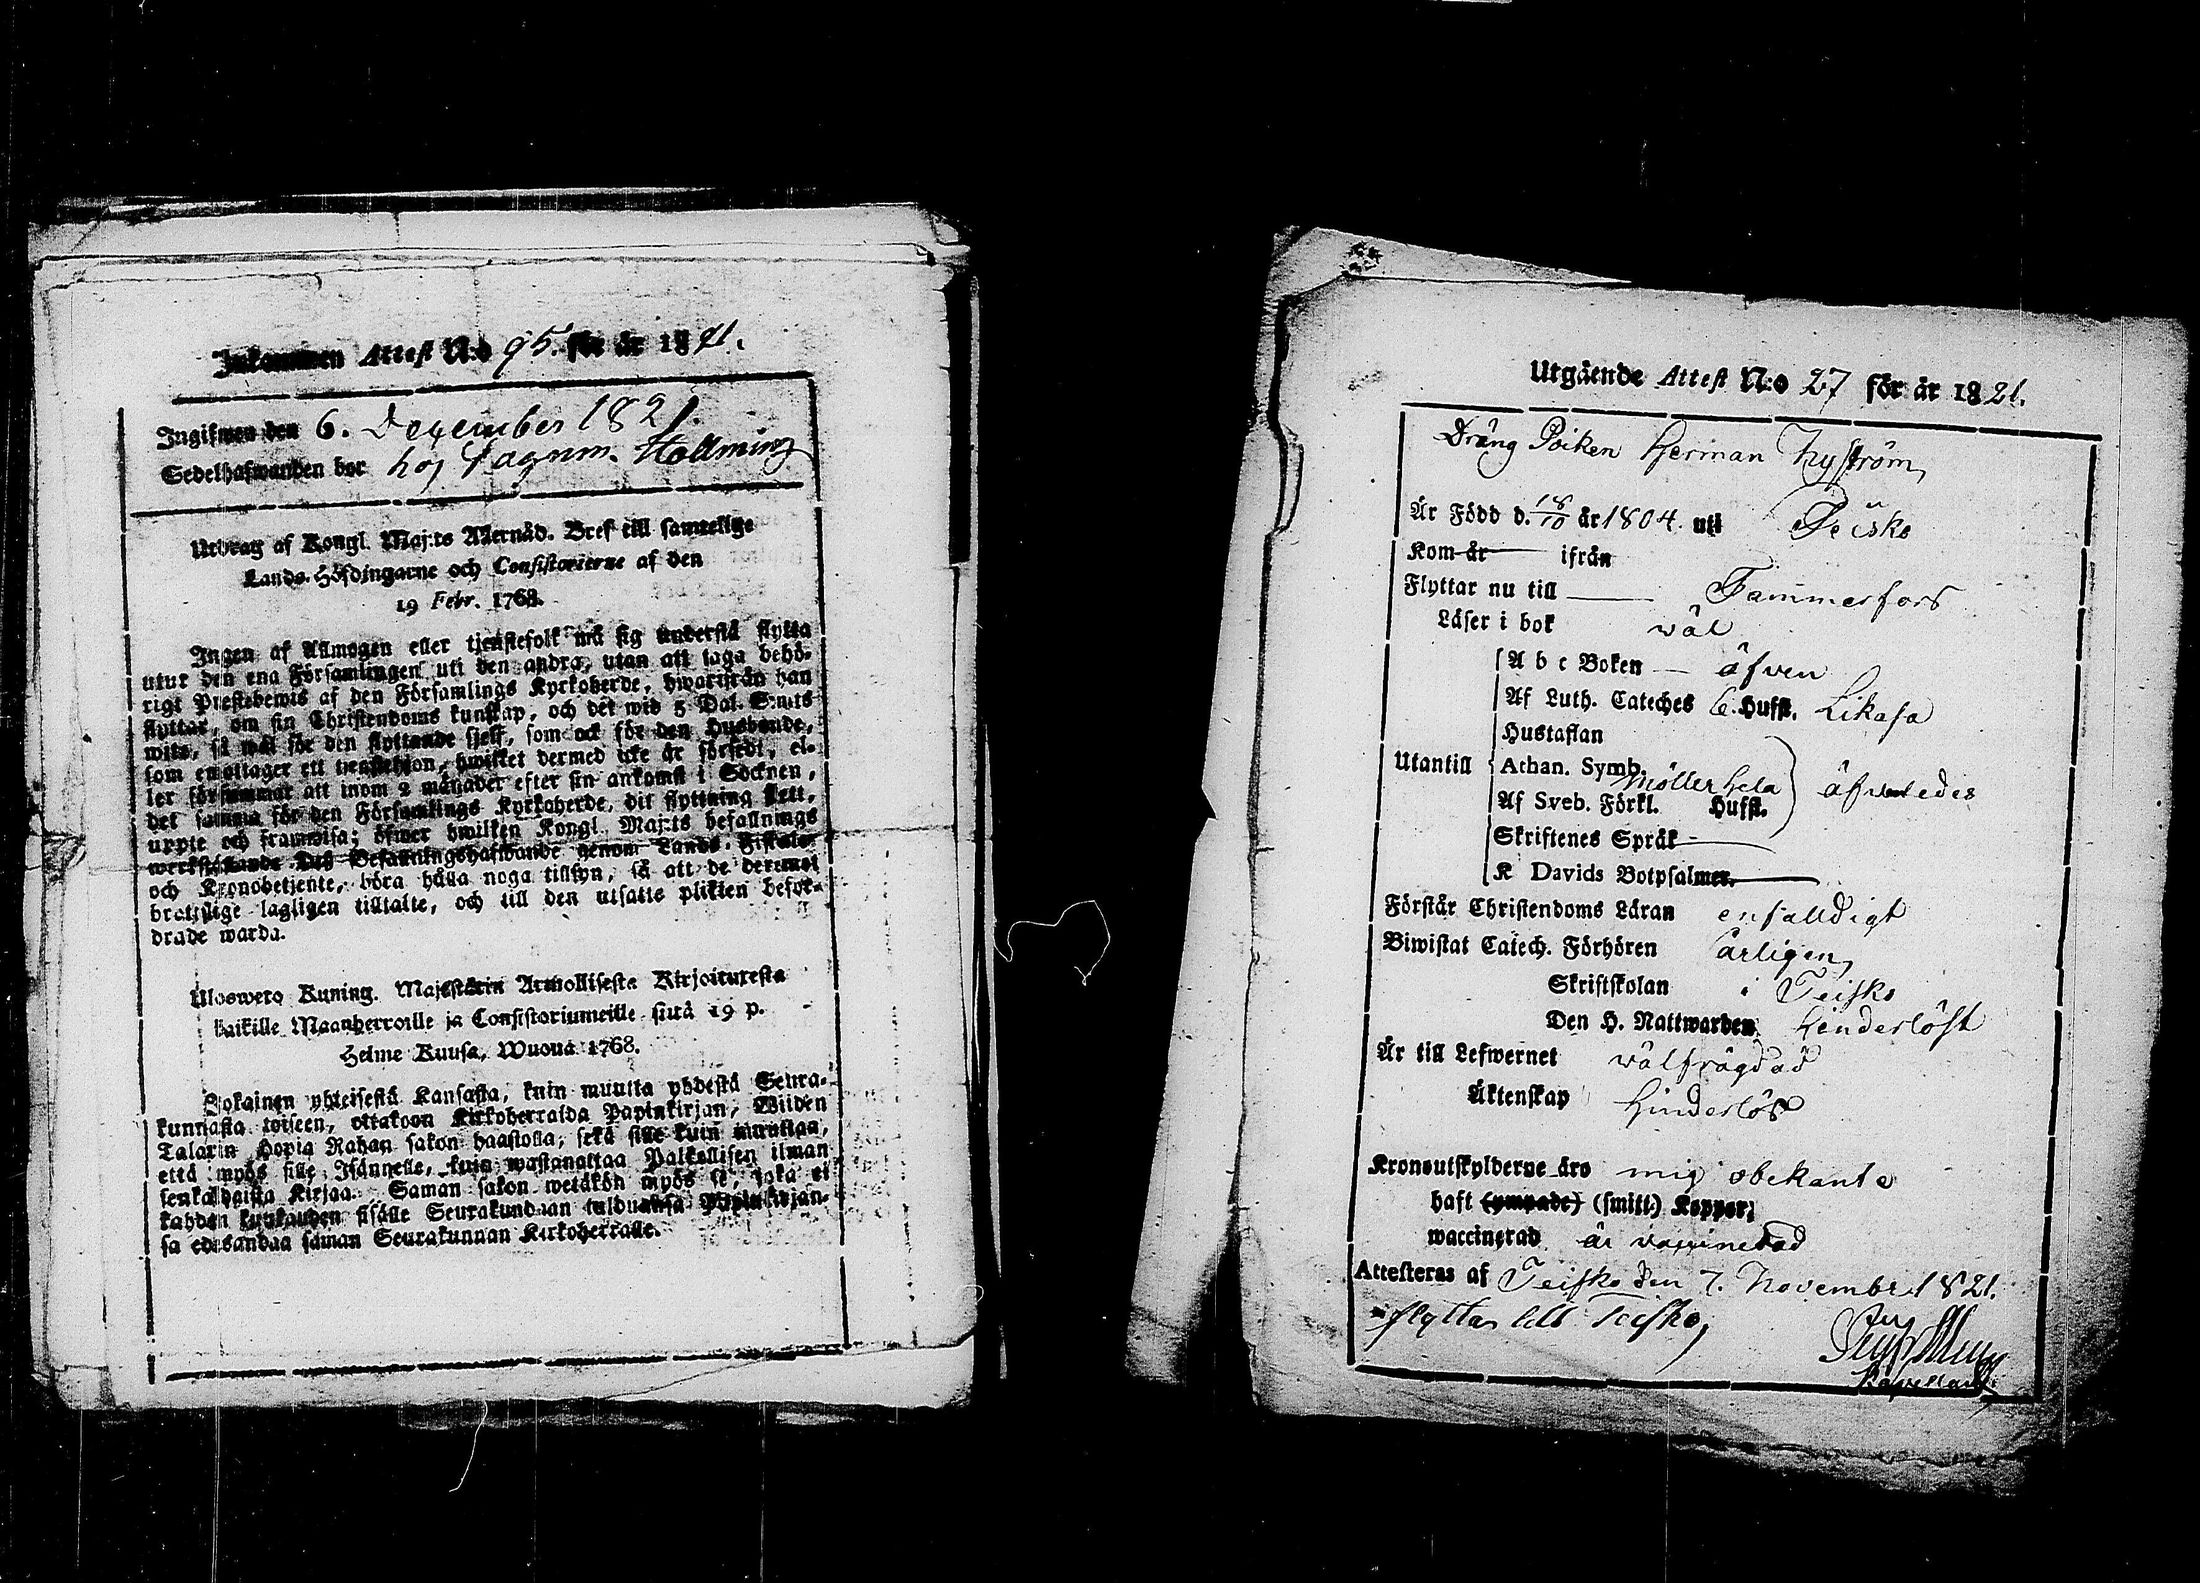 Inkommen Attest N:o 95. för år 1821.
Ingifwen den 6. December 1821.
Sedelhafwanden bor hoj Hollming
Utdrag af Kongl. Maj:ts Allernåd. Bref till samtellige
Lands-Höfdingarne och Consistorierne af den
19 Febr. 1768.
Ingen af Allmogen eller tjenstefolk må sig understå flytta
utur den ena Församlingen uti den andra, utan att taga behö-
rigt Prestebewis af den Församlings Kyrkoherde, hwarifrån han
flyttar, om sin Christendoms kunskap, och det wid 5 Dal. S:mts
wite, så wäl för den flyttande sjelf, som ock för den Husbonde,
som emottager ett tjenstehjon, hwilket dermed icke är försedt, el-
ler försummar att inom 2 månader efter sin ankomst i Socknen,
det samma för den Församlings Kyrkoherde, dit flyttning skett,
uppte och framwisa; öfwer hwilken Kongl. Maj:ts befallnings
werkställande Dess Befallningshafwande genom Lands-Fiskaler
och Kronobetjente, böra hålla noga tillsyn, så att de deremot
brottslige lagligen tilltalte, och till den utsatte plikten befor-
drade warda.
Uloswero Kuning. Majestätin Armollisesta Kirjoituresta
kaikille Maanherroille ja Consistoriumeille sittä 19 p.
Helme Kuusa, Wuona 1768.
Jokainen yhteisestä Kansasta, kuin muutta yhdestä Seura-
kunnasta toiseen, ottakoon Kirkoherralda Papinkirjan, Wiiden
Talarin Hopia Rahan sakon haastolla, sekä sille kuin muuttaa,
että myös sille Isännelle, kuin wastanottaa Palkollisen ilman
senkaldaista Kirjaa. Saman sakon wetäkön myös se, joka ei
kahden kuukauden sisälle Seurakundaan tulduansa Papinkirjan-
sa edesandaa saman Seurakunnan Kirkoherralle.
Utgående Attest N:o 27 för år 1821.
Dräng Poiken Herman Nyström,
Är Född d. 18/10 år 1804. uti Teisko
Kom år ifrån
Flyttar nu till Tammerfors
Läser i bok wäl
A b c Boken äfven
Af Luth. Cateches C. Hufst. Likasa
Hustaflan
Utantill Athan. Symb.
Möller hela äfvenledes
Af Sveb. Förkl. Hufst.
Skriftenes Språk
K Davids Botpsalmer.
Förstår Christendoms Läran enfalldigt
Biwistat Catech. Förhören ärligen,
Skriftskolan i Teisko
Den H. Nattwarden hinderlöst
Är till Lefwernet wälfrägdad
Äktenskap hinderlös
Kronoutskylderne äro mig obekante
haft (ympade) (smitt.) Koppor,
waccinerad är vaccinerad
Attesteras af Teisko den 7. Novembr 1821.
flyttar till Teisko,
Kapellan